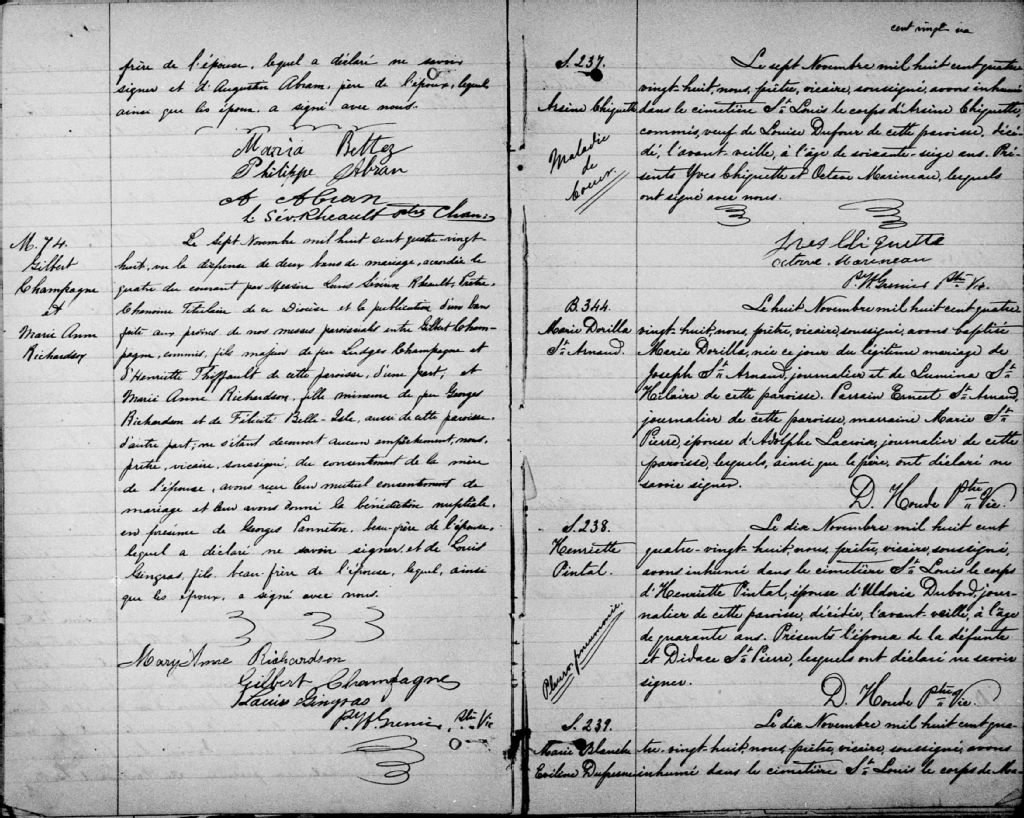 frère de l'épouse, lequel a déclaré ne savoir
signer et d'Augustin Abran, père de l'époux, lequel,
ainsi que les époux, a signé avec nous.
Maria Bettez
Philippe Abran
A Abran
L. Sév. Rheault ptre Chan.
M. 74.
Gilbert
Champagne
et
Marie Anne
Richardson
Le sept Novembre mil huit cent quatre-vingt
huit, vu la dispense de deux bans de mariage, accordée le
quatre du courant par Messire Louis Sévérin Rheault, Prêtre
Chanoine Titulaire de ce Diocèse et la publication d'un ban
faite aux prônes de nos messes paroissiales entre Gilbert Cham-
pagne, commis, fils majeur de feu Ludger Champagne et
d'Henriette Thiffault de cette paroisse, d'une part, et
Marie Anne Richardson, fille mineure de feu Georges
Richardson et de Félicité Belle-Isle, aussi de cette paroisse,
d'autre part; ne s'étant découvert aucun empêchement, nous,
prêtre, vicaire, soussigné, du consentement de la mère
de l'épouse, avons reçu leur mutuel consentement de
mariage et leur avons donné la bénédiction nuptiale,
en présence de Georges Panneton, beau-frère de l'épouse,
lequel a déclaré ne savoir signer, et de Louis
Gingras, fils, beau-frère de l'épouse, lequel, ainsi
que les époux, a signé avec nous.
Mary Anne Richardson
Gilbert Champagne
Louis Gingras
P. W. Grenier Ptre Vic
cent vingt
S. 237.
Arsène Chiquette
Maladie
de
Coeur.
Le sept Novembre mil huit cent quatre
vingt-huit, nous, prêtre, vicaire, soussigné, avons inhumé
dans le cimetière St Louis le corps d'Arsène Chiquette,
commis, veuf de Louise Dufour de cette paroisse, décé-
dé, l'avant-veille, à l'âge de soixante-seize ans. Pré-
sents Yves Chiquette et Octave Marineau, lesquels
ont signé avec nous.
Yves Chiquette
Octave Marineau
P. W. Grenier Ptre Vic.
B. 344.
Marie Dorilla
St Arnaud.
Le huit Novembre mil huit cent quatre
vingt-huit, nous, prêtre, vicaire, soussigné, avons baptisé
Marie Dorilla, née ce jour du légitime mariage de
Joseph St Arnaud, journalier et de Lumina St
Hilaire de cette paroisse. Parrain Ernest St Arnaud,
journalier de cette paroisse, marraine Marie St
Pierre, épouse d'Adolphe Lacroix, journalier de cette
paroisse, lesquels, ainsi que le père, ont déclaré ne
savoir signer.
D. Houde Ptre Vic.
S. 238.
Henriette
Pintal.
Pleuro pneumonie
Le dix Novembre mil huit cent
quatre-vingt-huit, nous, prêtre, vicaire, soussigné,
avons inhumé dans le cimetière St Louis le corps
d'Henriette Pintal, épouse d'Uldoric Dubord, jour-
nalier de cette paroisse, décédée, l'avant veille, à l'âge
de quarante ans. Présents l'époux de la défunte
et Didace St Pierre, lesquels ont déclaré ne savoir
signer.
D. Houde Ptre Vic.
S. 239.
Marie Blanche
Eveline Dufresne
Le dix Novembre mil huit cent qua-
tre-vingt-huit, nous, prêtre, vicaire, soussigné, avons
inhumé dans le cimetière St Louis le corps de Ma-